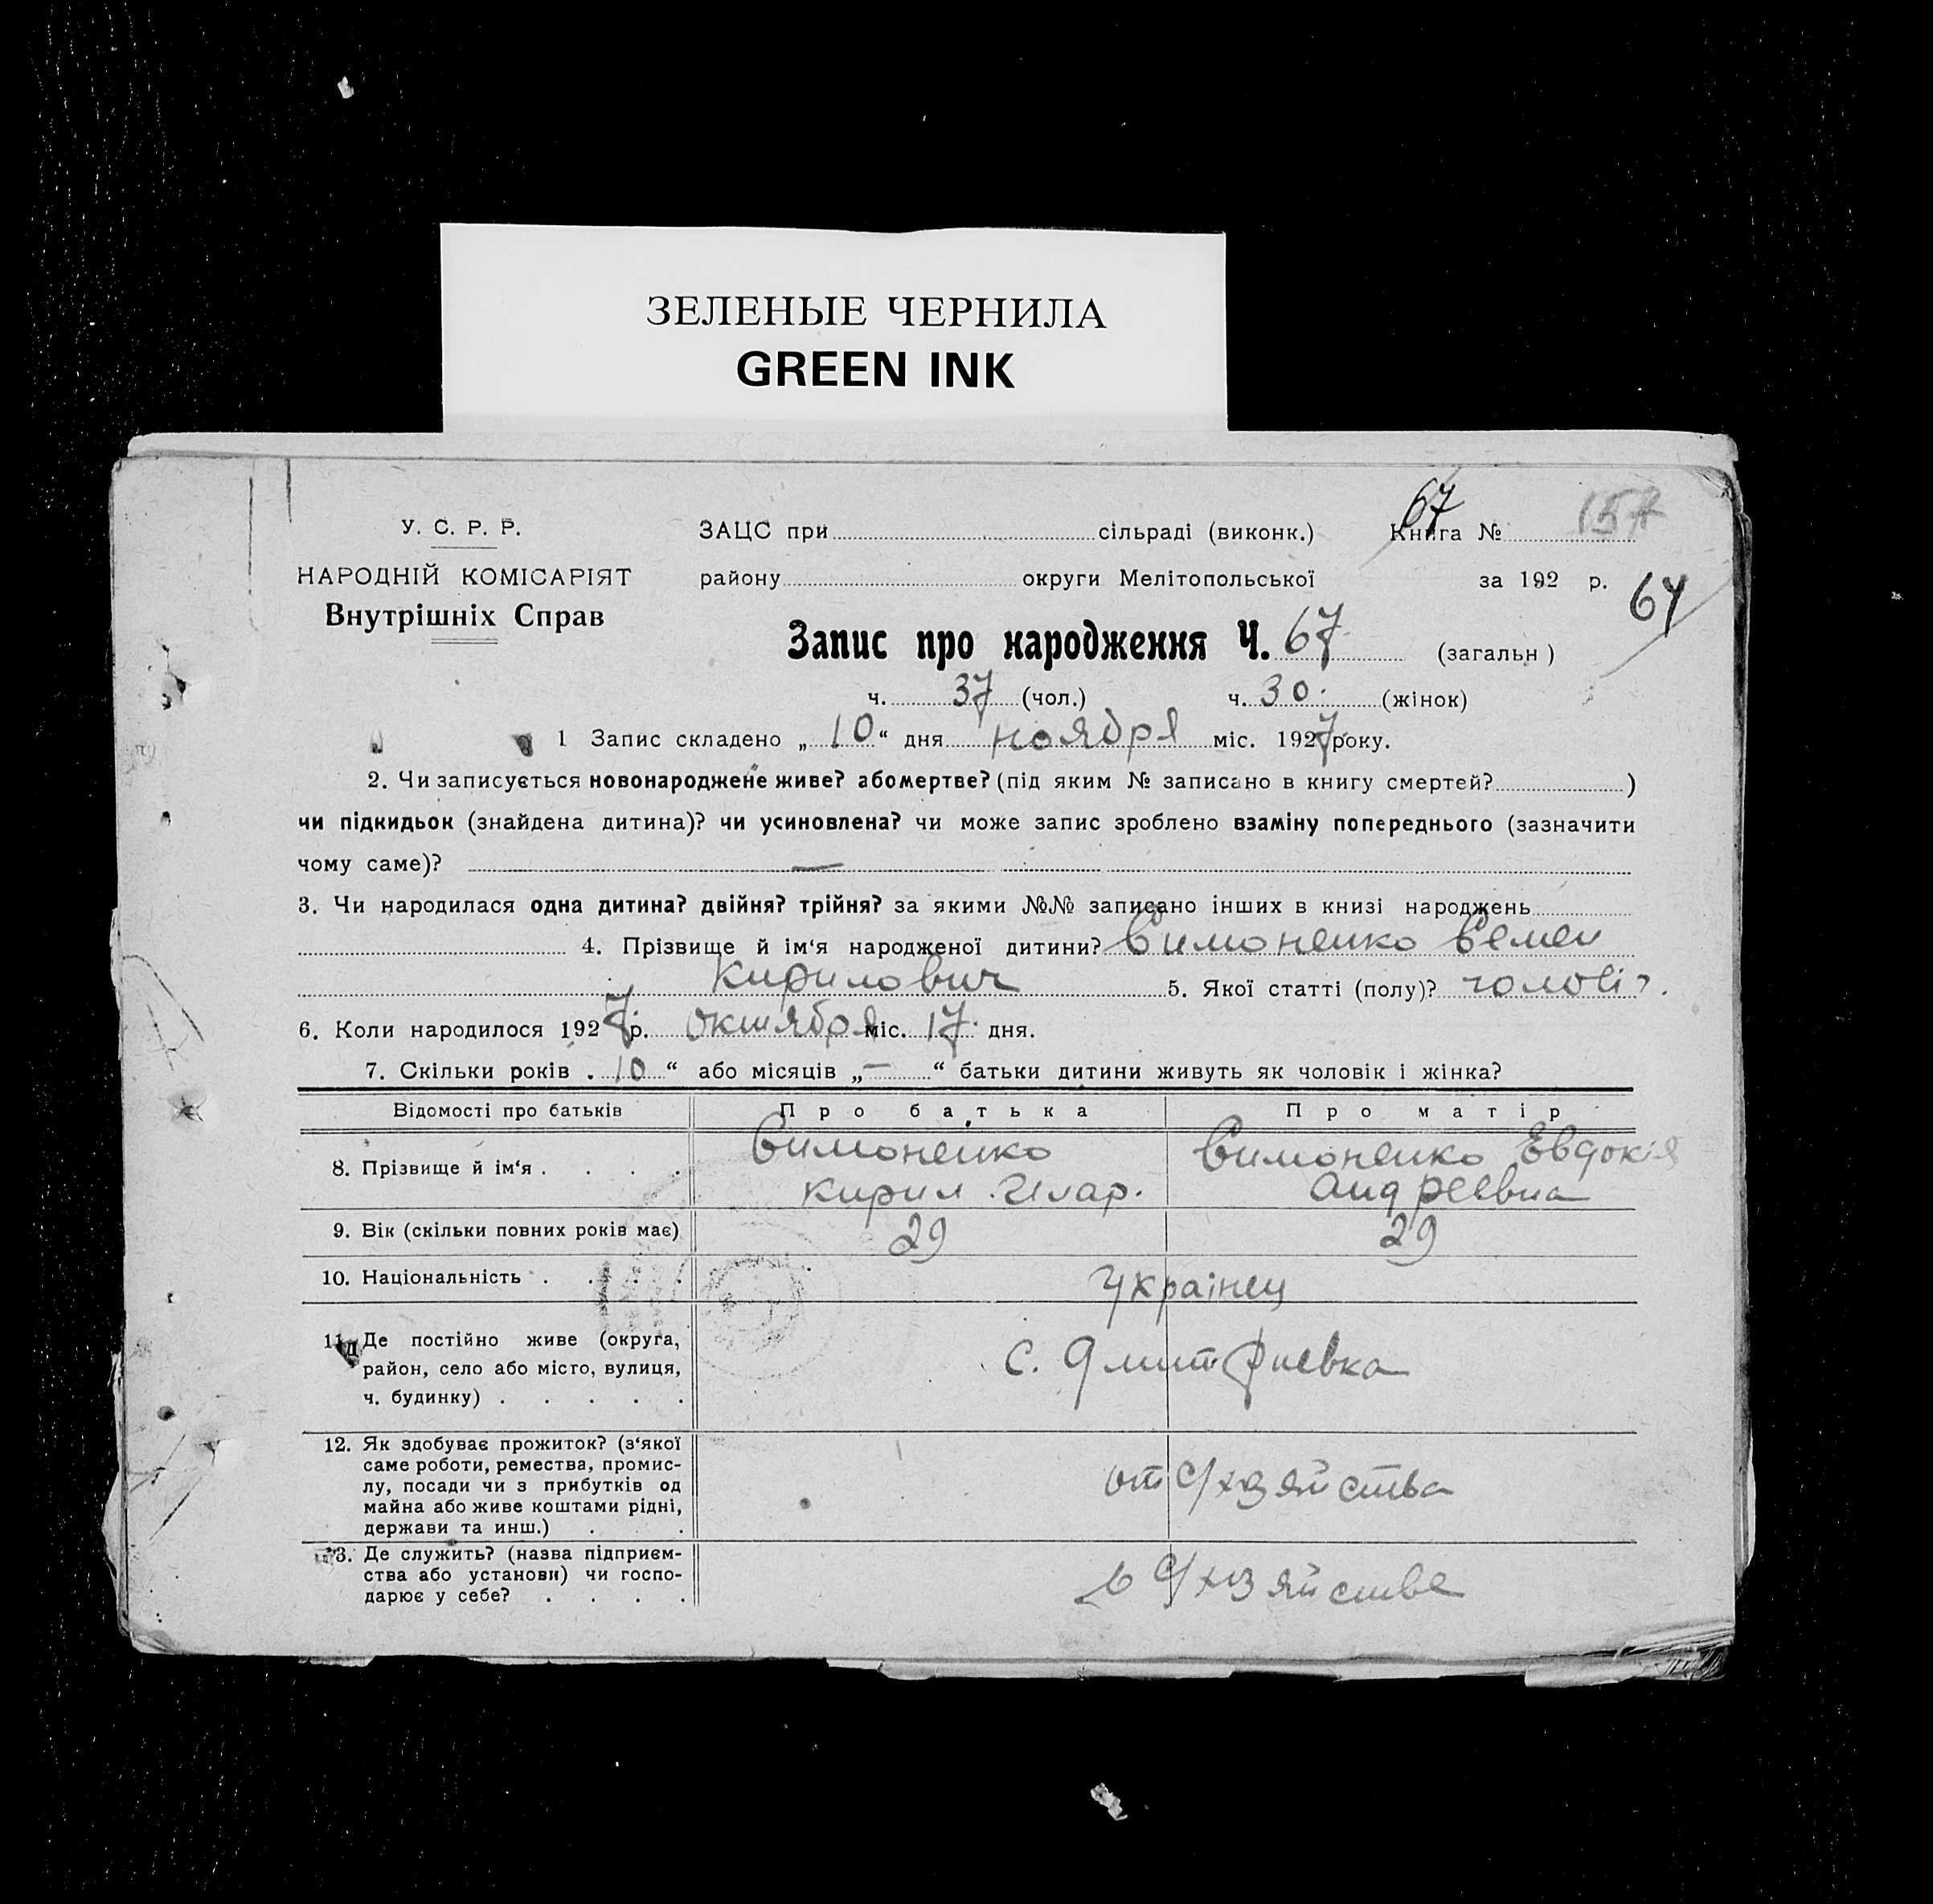 ЗЕЛЕНЫЕ ЧЕРНИЛА
GREEN INK
У. С. Р. Р.
НАРОДНІЙ КОМІСАРІЯТ
Внутрішніх Справ
67
ЗАЦС при сільраді (виконк.) Книга № 157
району округи Мелітопольської за 192 р.
67
Запис про народження Ч. 67 (загальн )
ч. 37 (чол.) ч. 30. (жінок)
1 Запис складено „ 10 “ дня ноября міс. 1927 року.
2. Чи записується новонароджене живе? або мертве? (під яким № записано в книгу смертей? )
чи підкидьок (знайдена дитина)? чи усиновлена? чи може запис зроблено взаміну попереднього (зазначити
чому саме)? —
3. Чи народилася одна дитина? двійня? трійня? за якими №№ записано інших в книзі народжень
4. Прізвище й ім‘я народженої дитини? Симоненко Семен
Кирилович 5. Якої статті (полу)? чоловіч.
6. Коли народилося 1927 р. октября міс. 17. дня.
7. Скільки років . 10 “ або місяців „ — “ батьки дитини живуть як чоловік і жінка?
Відомості про батьків Про батька Про матір
8. Прізвище й ім‘я . . . . Симоненко Симоненко Евдокія
Кирил Илар. Андреевна
9. Вік (скільки повних років має) 29 29
10. Національність . . . . Українец
11. Де постійно живе (округа,
район, село або місто, вулиця,
ч. будинку) . . . . .
с. Дмитриевка
12. Як здобуває прожиток? (з‘якої
саме роботи, ремества, промис-
лу, посади чи з прибутків од
майна або живе коштами рідні,
держави та инш.) . .
от с/хозяйства
13. Де служить? (назва підприєм-
ства або установи) чи госпо-
дарює у себе? . . . .
в с/хозяйстве